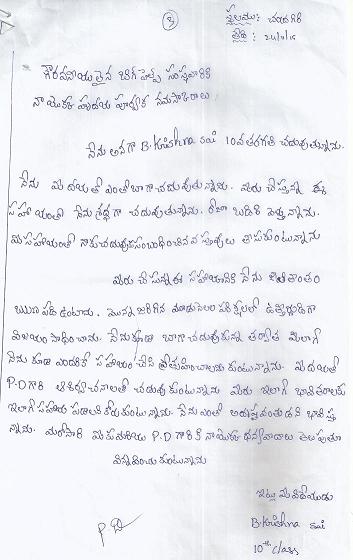 3
స్థలము: చంద్రగిరి
తేది: 24/9/15
గౌరవనీయులైన బిగ్ హెల్ప్ సంస్థవారికి
నా యొక్క హృదయ పూర్వక నమస్కారాలు
నేను అనగా B.Krishna sai 10వతరగతి చదువుతున్నాను.
నేను మీ దయతో ఎంతో బాగా చదువుతున్నాను. మీరు చేస్తున్న ఈ
సహాయంతో నేను శ్రద్ధగా చదువుతున్నాను. రోజూ బడికి వెళ్తున్నాను.
మీ సహాయంతో నాకు చదువుకు సంబంధించిన వస్తువులు తీసుకుంటున్నాను
మీరు చేస్తున్న ఈ సహాయానికి నేను జీవితాంతం
ఋణపడి ఉంటాను. మొన్న జరిగిన మూడునెలల పరీక్షలలో ఉత్తీర్ణుడిగా
విజయం సాధించాను. నేను కూడా బాగా చదువుకున్న తర్వాత మీలాగే
నేను కూడా ఎందరికో సహాయం చేసి ప్రోత్సహించాలనుకుంటున్నాను. మీ దయతో
P.D గారి ఆశీర్వచనాలతో చదువుకుంటున్నాను మీరు ఇలాగే బావితరాలకు
ఇలాగే సహాయ పడాలని కోరుకుంటున్నాను. నేను ఎంతో అదృష్టవంతుడని భావిస్తు
న్నాను. మరోసారి మీకు మరియు P.D గారికి నా యొక్క ధన్యవాదాలు తెలుపుతూ
విన్నవించుకుంటున్నాను
ఇట్లు మీ విధేయుడు
B.Krishna sai
10th class